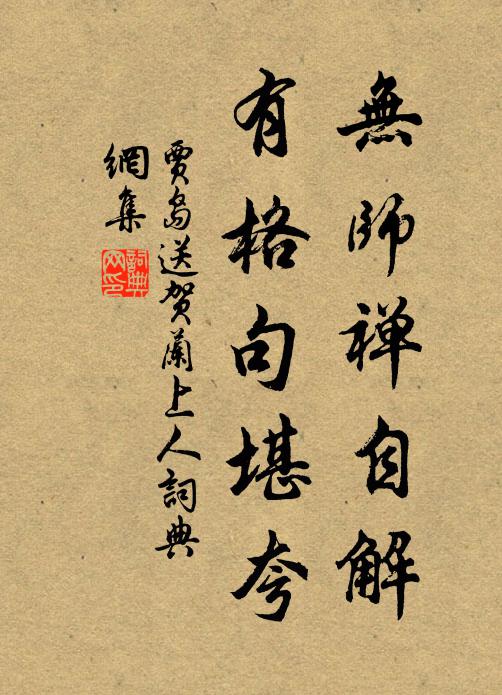 無師禅自解
有格句堪夸
賈島送贺蘭上人詞典
網集
詞典
网印